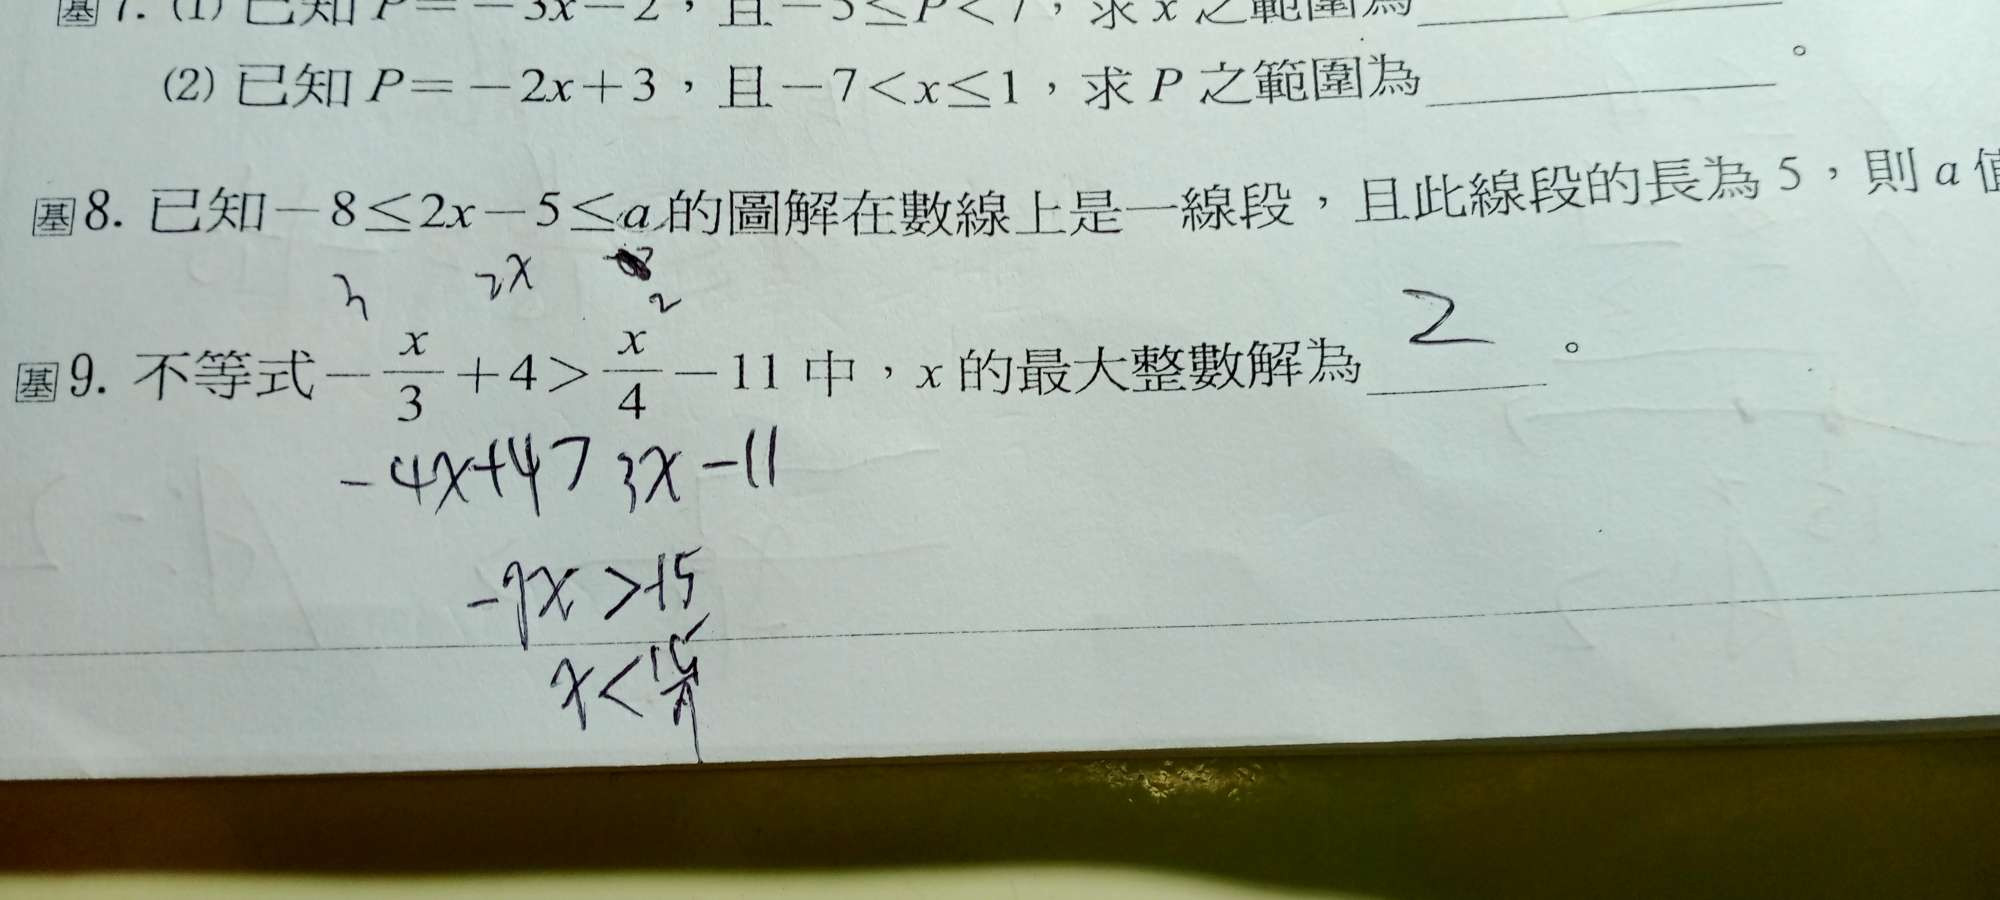 基 7. (1) 已知 P=-3x-2，且-5≤P<7，求 x 之範圍為
(2) 已知 P=-2x+3，且-7<x≤1，求 P 之範圍為________。
基 8. 已知-8≤2x-5≤a 的圖解在數線上是一線段，且此線段的長為 5，則 a 值
2x
2
基 9. 不等式-x/3+4>x/4-11 中，x 的最大整數解為 2 。
-4x+4>3x-11
-7x>-15
x<15/7